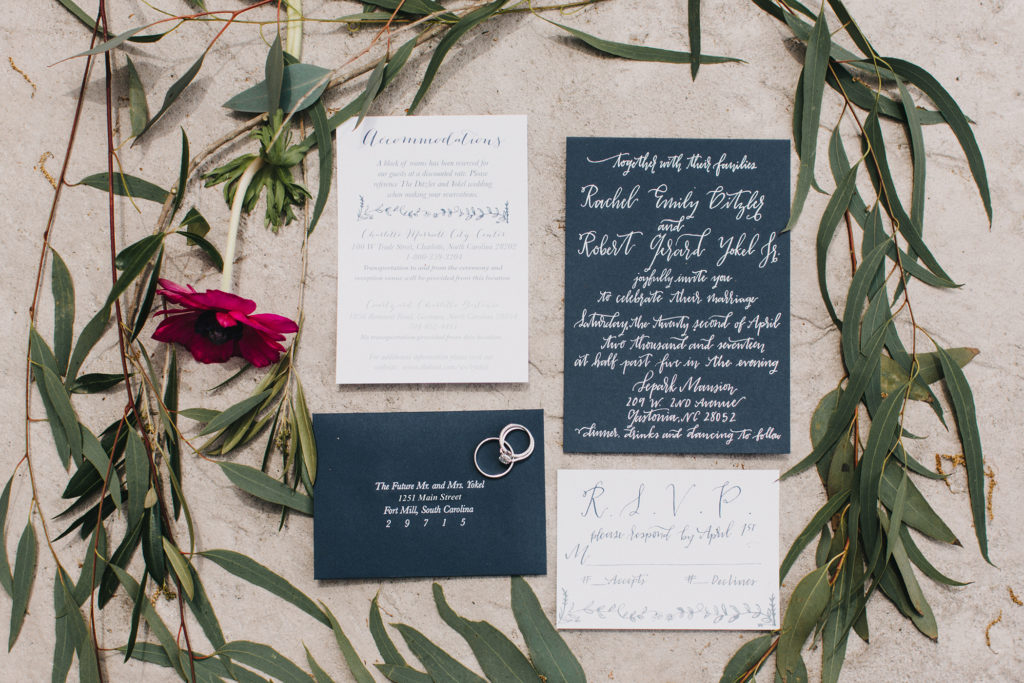 Accommodations
A block of rooms has been reserved for
our guests at a discounted rate. Please
reference The Ditzler and Yokel wedding
when making your reservations.
Charlotte Marriott City Center
100 W Trade Street, Charlotte, North Carolina 28202
1-800-359-3204
Transportation to and from the ceremony and
reception venue will be provided from this location
Courtyard Charlotte Gastonia
Road, Gastonia, North Carolina 28054
No transportation provided from this location.
For additional information please visit our
website:
together with their families
Rachel Emily Ditzler
and
Robert Gerard Yokel Jr.
joyfully invite you
to celebrate their marriage
Saturday, the twenty second of April
two thousand and seventeen
at half past five in the evening
Separk Mansion
209 W. 2ND Avenue
Gastonia, NC 28052
dinner, drinks and dancing to follow
The Future Mr. and Mrs. Yokel
1251 Main Street
Fort Mill, South Carolina
29715
R.S.V.P.
please respond by April 1st
M
#__Accepts #__Declines